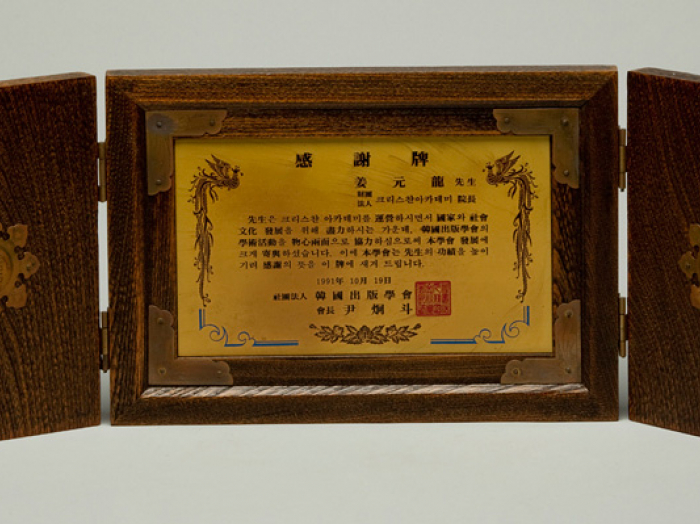 感謝牌
姜元龍 先生
財團法人 크리스찬아카데미 院長
先生은 크리스찬 아카데미를 運營하시면서 國家와 社會
文化 發展을 위해 盡力하시는 가운데, 韓國出版學會의
學術活動을 物心兩面으로 協力하심으로써 本學會 發展에
크게 寄與하셨습니다. 이에 本學會는 先生의 功績을 높이
기려 感謝의 뜻을 이 牌에 새겨 드립니다.
1991年 10月 19日
社團法人 韓國出版學會
會長 尹炯斗